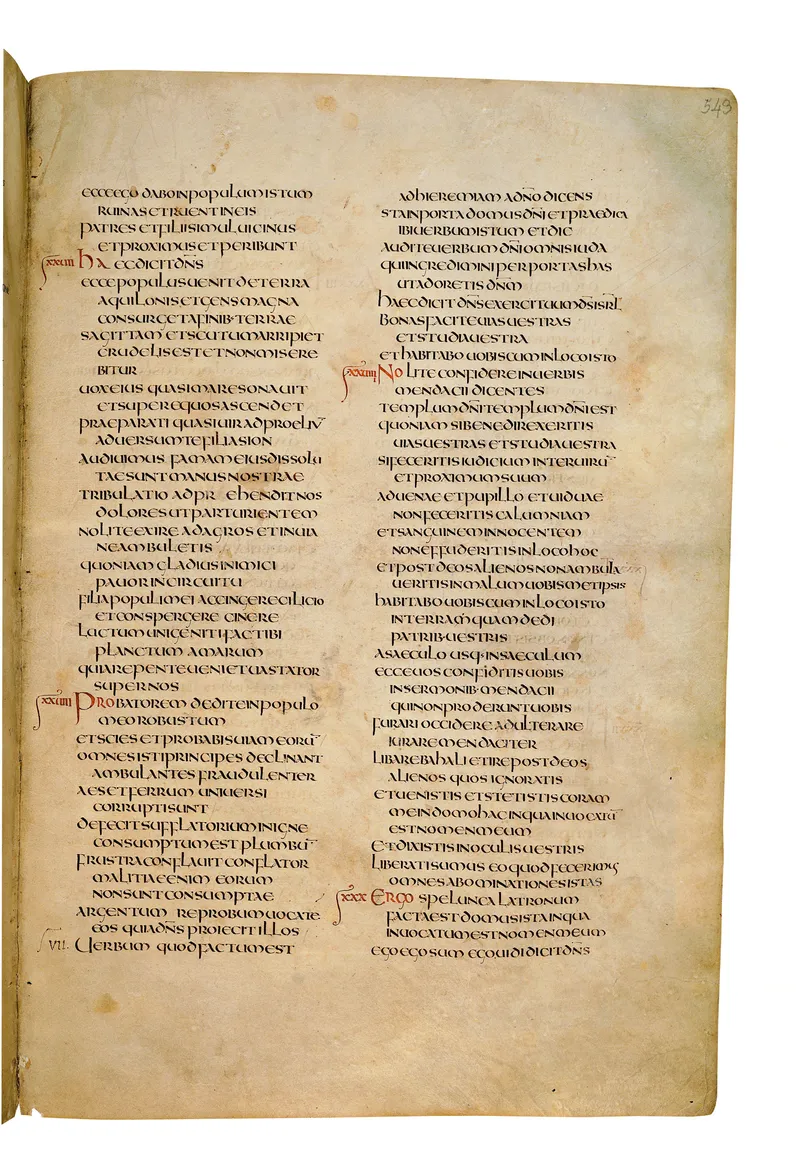 543
ecceego daboinpopulumistum
ruinasetruentineis
patres etfiliisimuluicinus
etproximusetperibunt
xxvii haecdicitdn̄s
eccepopulusuenitdeterra
aquilonisetgensmagna
consurgetafinib·terrae
sagittametscutumarripiet
crudelisestetnonmisere
bitur
uoxeius quasimaresonauit
etsuperequosascendet
praeparati quasiuiradproeliū
aduersumtefiliasion
audiuimus famameiusdissolu
taesuntmanusnostrae
tribulatio adpr ehenditnos
doloresutparturientem
noliteexire adagros etinuia
neambuletis
quoniam gladiusinimici
pauorincircuitu
filiapopulimei accingerecilicio
etconspergere cinere
luctumunigenitifactibi
planctum amarum
quiarepenteuenietuastator
supernos
xxviii Probatorem dediteinpopulo
meorobustum
etscies etprobabisuiam eorū
omnes istiprincipes declinant
ambulantes fraudulenter
aesetferrum uniuersi
corruptisunt
defecitsufflatoriuminigne
consumptumest plumbū
frustraconflauit conflator
malitiaeenim eorum
nonsuntconsumptae
argentum reprobumuocate
eos quiadn̄s proiecit illos
vii. Uerbum quodfactumest
adhieremiam adn̄o dicens
stainportadomusdn̄i etpraedica
ibiuerbumistum etdic
auditeuerbumdn̄iomnisiuda
quiingrediminiperportashas
utadoretis dn̄m
haecdicit dn̄sexercituumds̄isrl̄
bonasfaciteuiasuestras
etstudiauestra
ethabitabo uobiscuminlocoisto
xxviiii Nolite confidereinuerbis
mendacii dicentes
templumdn̄itemplumdn̄iest
quoniam sibenedirexeritis
uiasuestras etstudiauestra
sifeceritisiudicium interuirū
etproximumsuum
aduenae etpupillo etuiduae
nonfeceritis calumniam
etsanguineminnocentem
noneffuderitisinlocohoc
etpostdeosalienosnonambula
ueritisinmalumuobismetipsis
habitabo uobiscuminlocoisto
interramquamdedi
patrib·uestris
asaeculo usq·insaeculum
ecceuos confiditisuobis
insermonib·mendacii
quinonproderuntuobis
furari occidere adulterare
iuraremendaciter
libarebahali etirepostdeos
alienos quos ignoratis
etuenistis etstetistis coram
meindomohacinquainuocatū
estnomenmeum
etdixistisinoculisuestris
liberatisumus eo quodfecerimus
omnesabominationesistas
xxx Ergo speluncalatronum
factaestdomusistainqua
inuocatumestnomenmeum
egoegosum egouididicitdn̄s